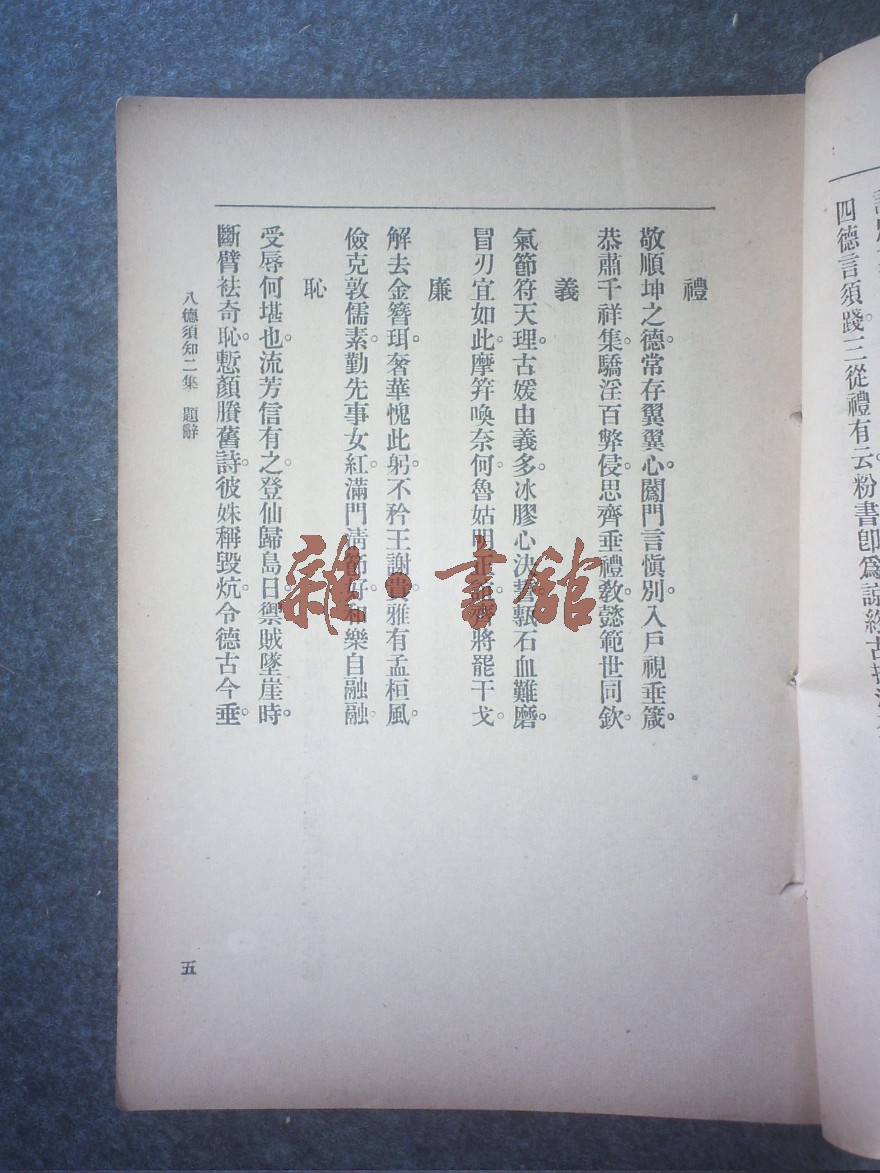 四德言須踐。三從禮有云。粉書卽爲
禮
敬順坤之德。常存翼翼心。閫門言愼別。入戶視垂箴。
恭肅千祥集。驕淫百弊侵。思齊垂禮敎。懿範世同欽。
義
氣節符天理。古媛由義多。冰膠心決誓。甎石血難磨。
冒刃宜如此。摩笄喚奈何。魯姑明 將罷干戈。
廉
解去金簪珥。奢華愧此躬。不矜王謝貴。雅有孟桓風。
儉克敦儒素。勤先事女紅。滿門淸節好。和樂自融融。
恥
受辱何堪也。流芳信有之。登仙歸島日。禦賊墜崖時。
斷臂袪奇恥。慙顏賸舊詩。彼姝稱毀炕。令德古今垂。
八德須知二集 題辭
五
雜·書館